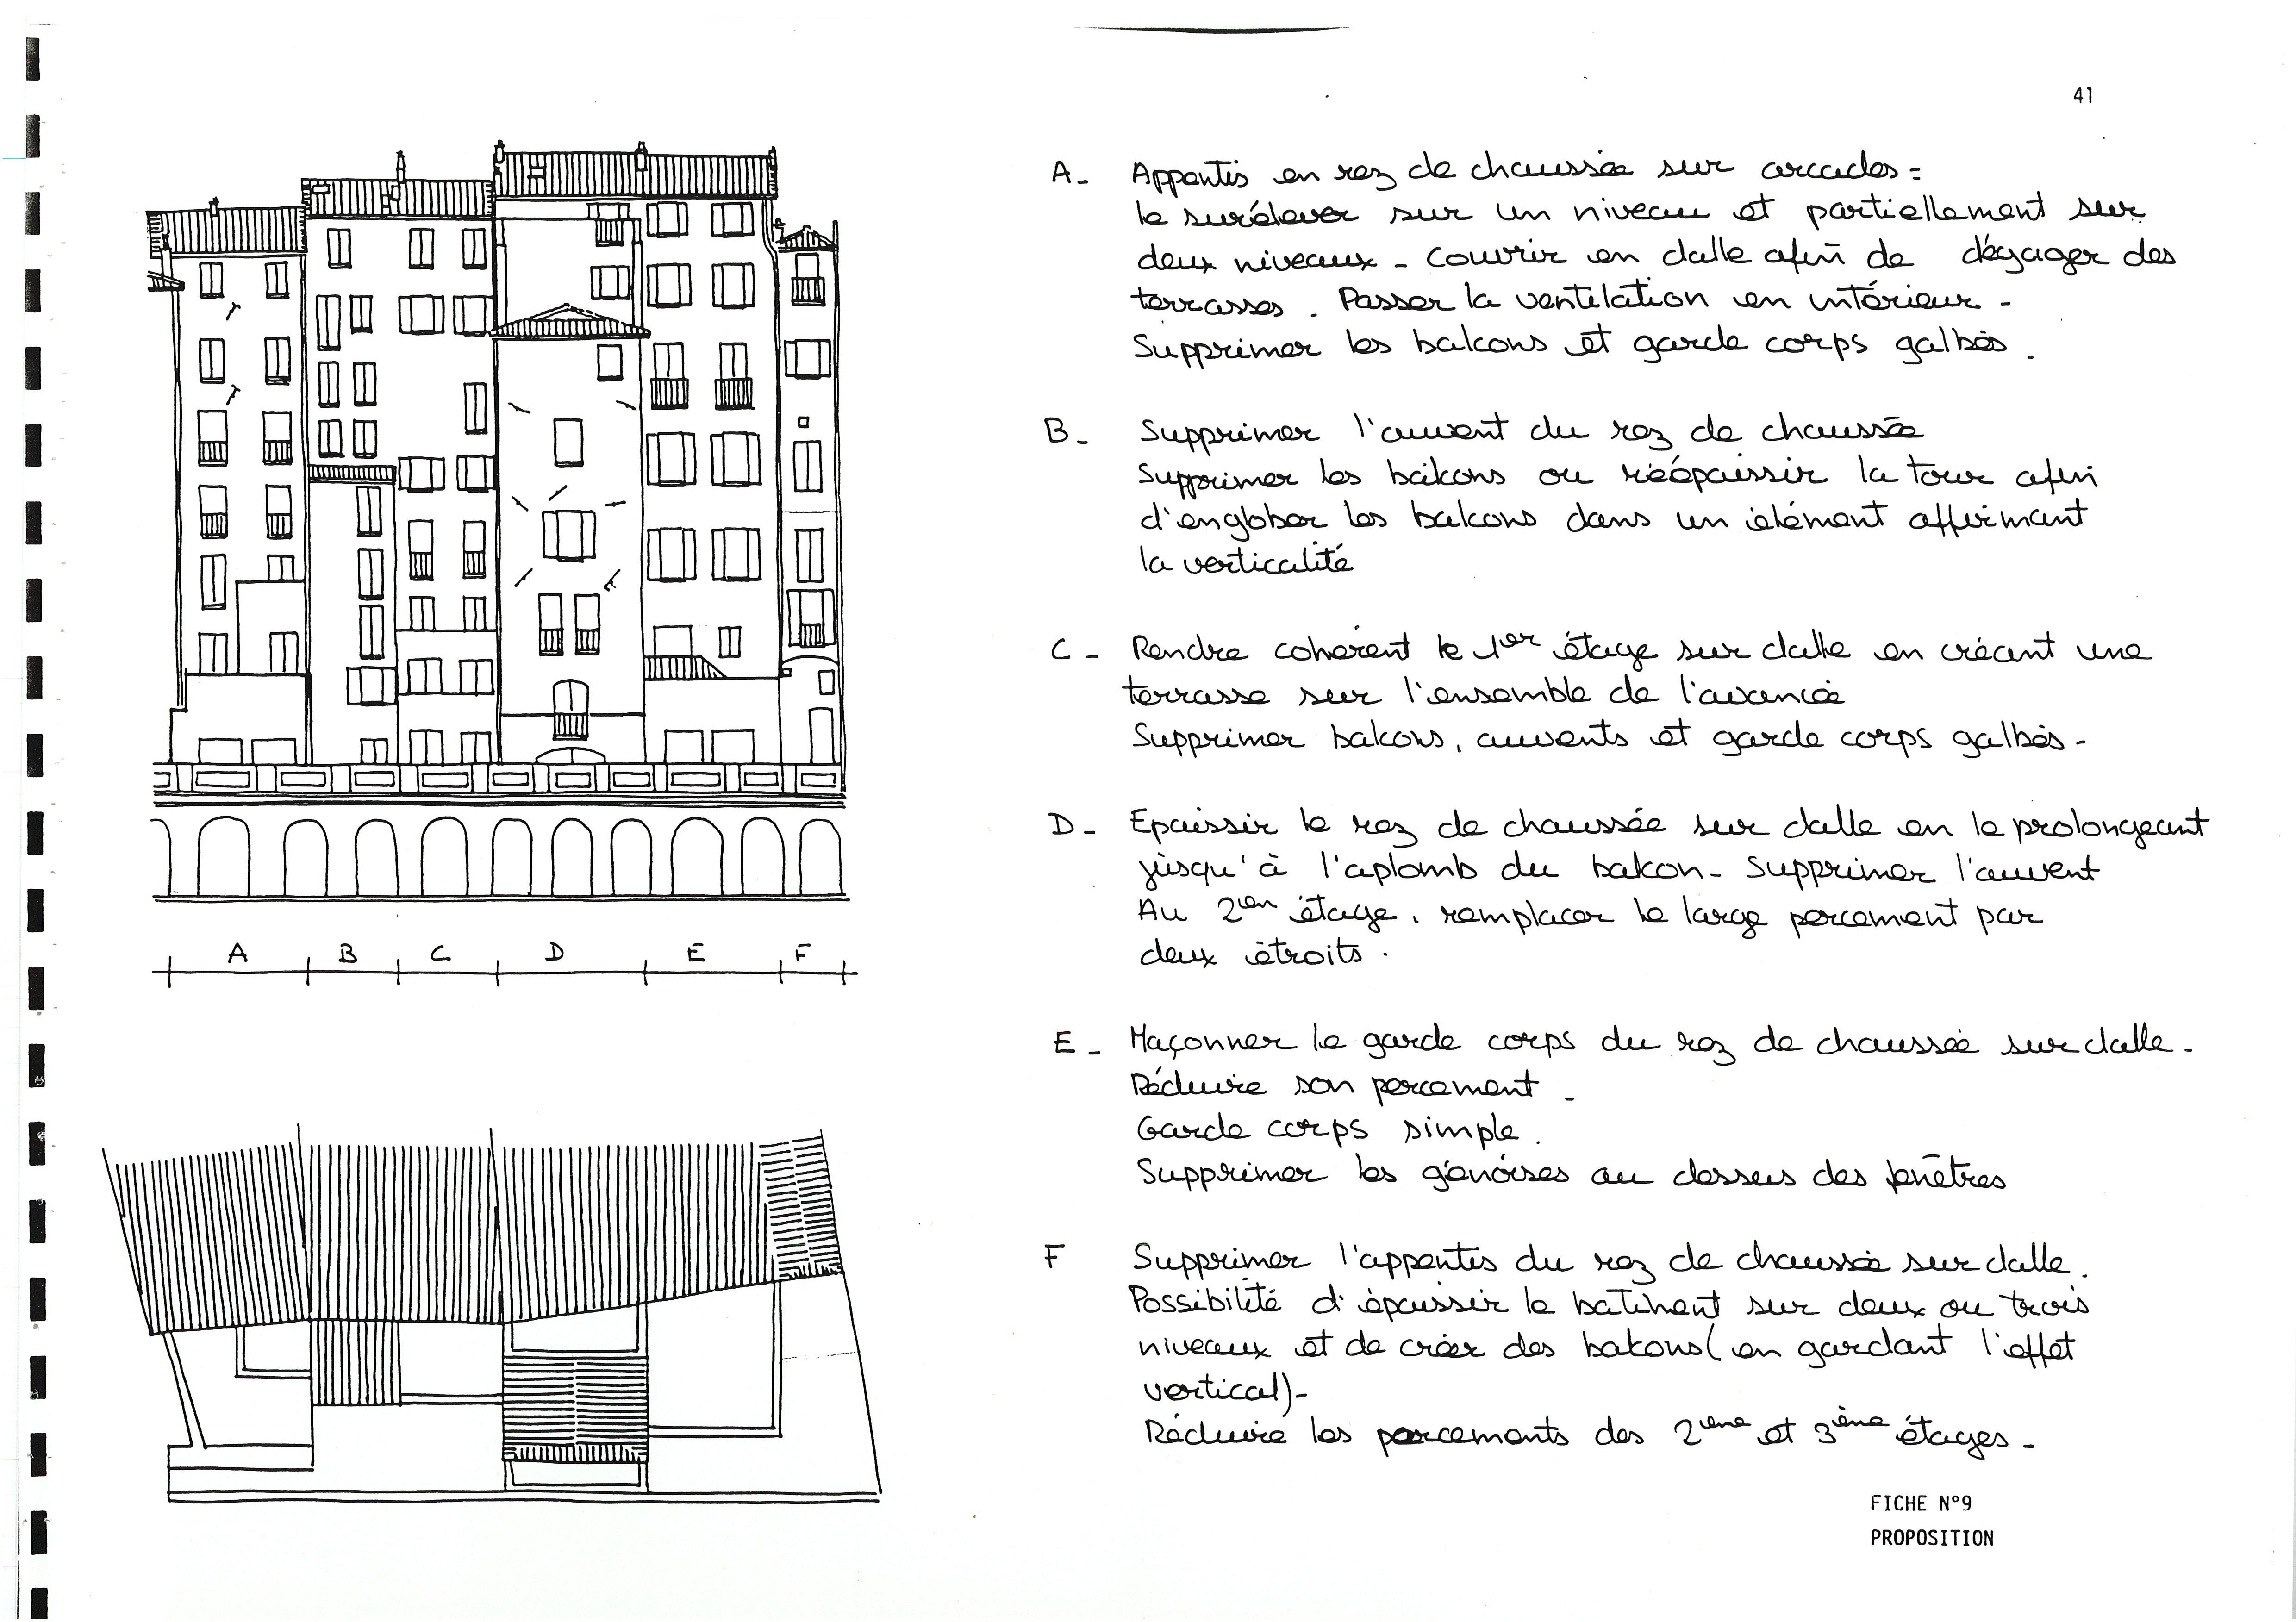 41
A- Appentis en rez de chaussée sur arcades =
le surélever sur un niveau et partiellement sur
deux niveaux - couvrir en dalle afin de dégager des
terrasses. Passer la ventilation en intérieur -
Supprimer les balcons et garde corps galbés.
B- Supprimer l'auvent du rez de chaussée
Supprimer les balcons ou réépaissir la tour afin
d'englober les balcons dans un élément affirmant
la verticalité
C- Rendre cohérent le 1er étage sur dalle en créant une
terrasse sur l'ensemble de l'avancée
Supprimer balcons, auvents et garde corps galbés-
D- Epaissir le rez de chaussée sur dalle en le prolongeant
jusqu'à l'aplomb du balcon- Supprimer l'auvent
Au 2ien étage, remplacer le large percement par
deux étroits.
E- Maçonner le garde corps du rez de chaussée sur dalle-
Réduire son percement -
Garde corps simple.
Supprimer les génoises au dessus des fenêtres
F Supprimer l'appentis du rez de chaussée sur dalle.
Possibilité d'épaissir le batiment sur deux ou trois
niveaux et de créer des balcons (en gardant l'effet
vertical)-
Réduire les percements des 2ième et 3ième étages-
A B C D E F
FICHE N°9
PROPOSITION